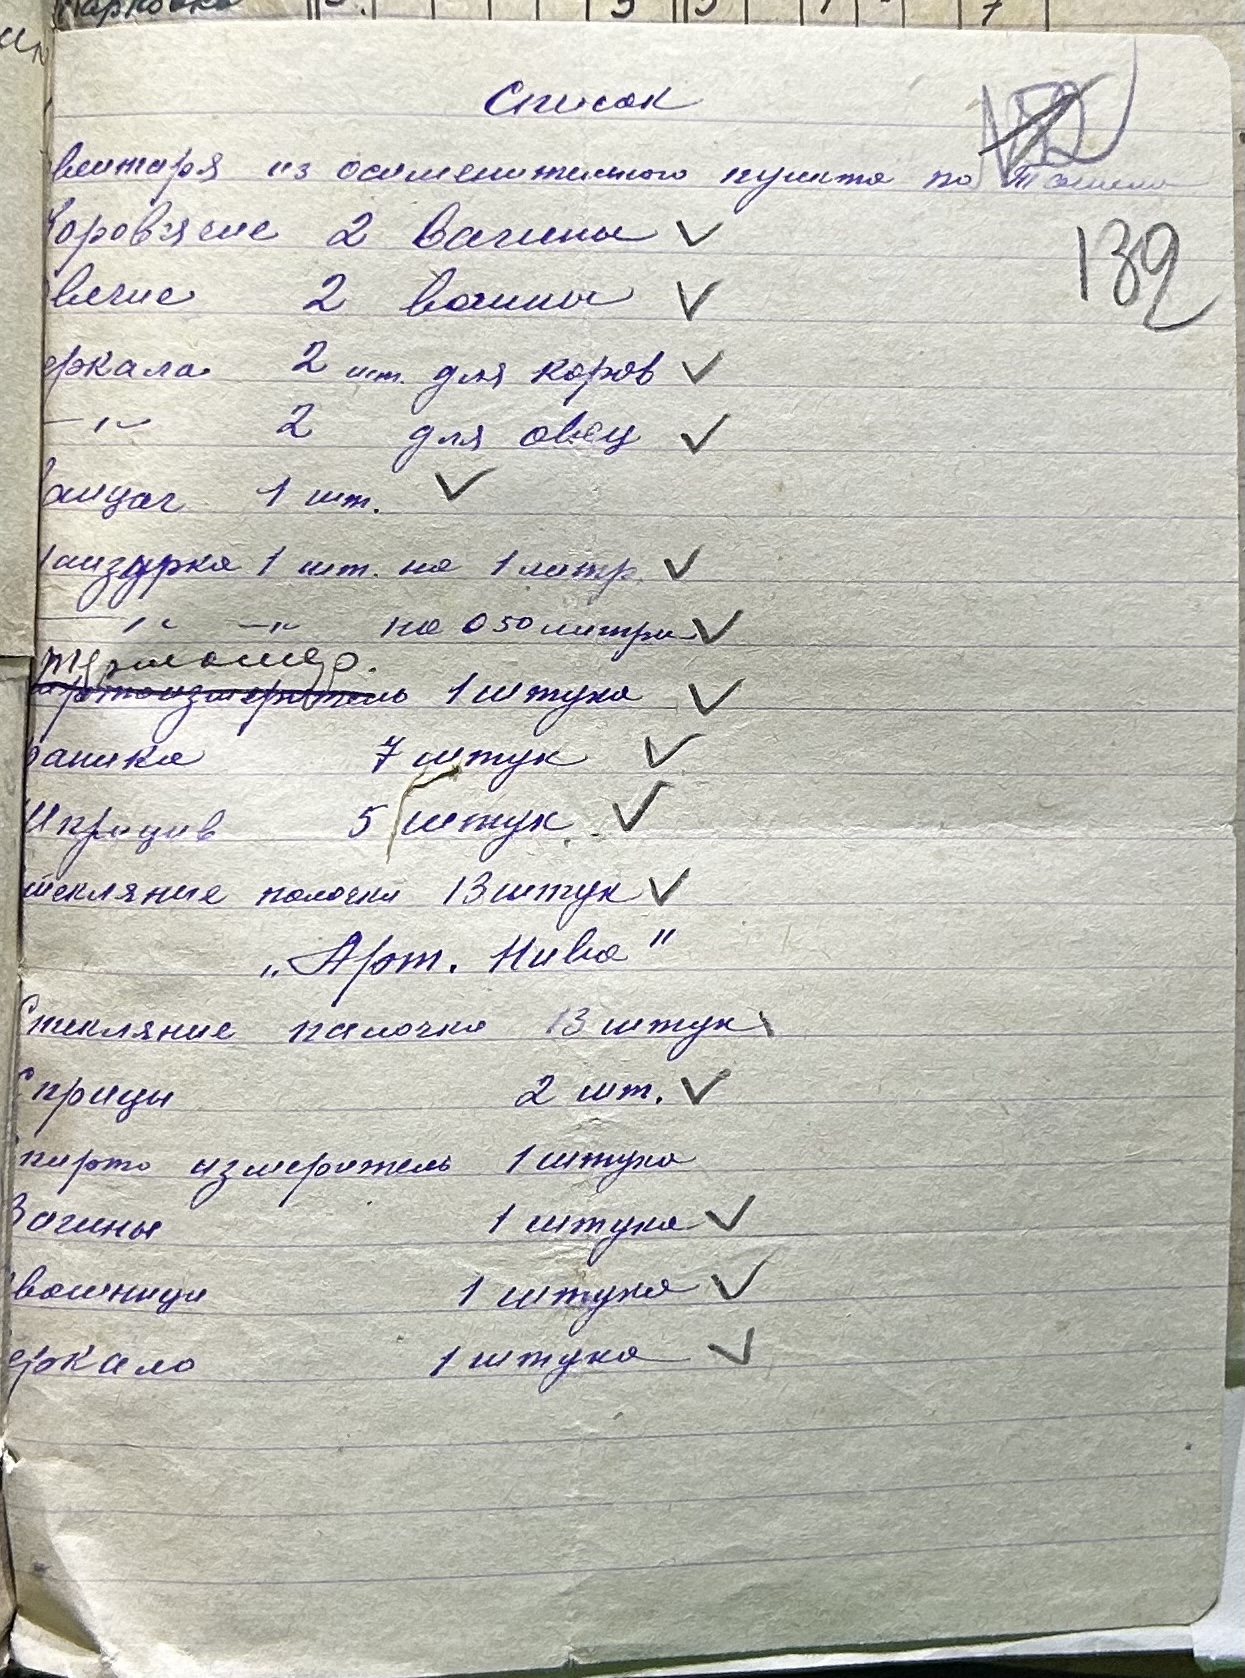 Список
вентаря из осеменительного пункта по
132
Коровячие 2 Вагины ✓
вечие 2 вагины ✓
еркала 2 шт. для коров ✓
—〃— 2 для овец ✓
1 шт. ✓
анзурка 1 шт. на 1 литр. ✓
—〃— —〃— на 0 50 литра ✓
термометр.
ртоизмеритель 1 штука ✓
баника 7 штук ✓
Шприцив 5 штук. ✓
текляние палочки 13 штук ✓
„Арт. Нива"
Стекляние палочка 13 штук
Сприцы 2 шт. ✓
Спирто измеритель 1 штука
Вагины 1 штука ✓
1 штука ✓
еркало 1 штука ✓